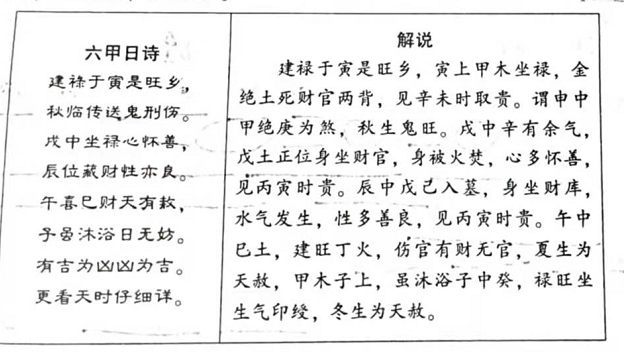 六甲日诗
建禄于寅是旺乡，
秋临传送鬼刑伤。
戌中坐禄心怀善，
辰位藏财性亦良。
午喜巳财天有赦，
子虽沐浴日无妨。
有吉为凶凶为吉。
更看天时仔细详。
解说
建禄于寅是旺乡，寅上甲木坐禄，金
绝土死财官两背，见辛未时取贵。谓申中
甲绝庚为煞，秋生鬼旺。戌中辛有余气，
戊土正位身坐财官，身被火焚，心多怀善，
见丙寅时贵。辰中戊己入墓，身坐财库，
水气发生，性多善良，见丙寅时贵。午中
巳土，建旺丁火，伤官有财无官，夏生为
天赦，甲木子上，虽沐浴子中癸，禄旺坐
生气印绶，冬生为天赦。